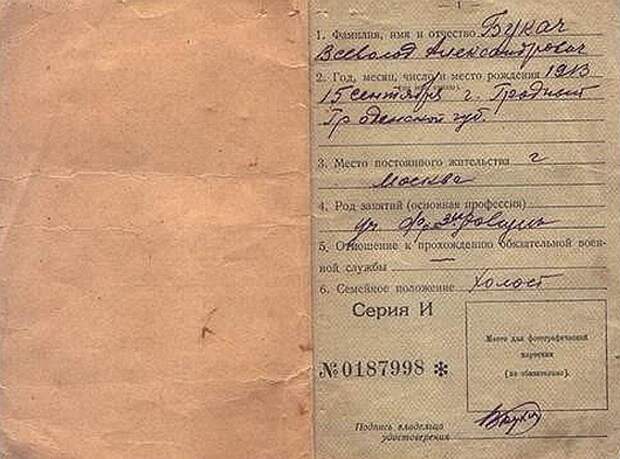 — 1 —
1. Фамилия, имя и отчество Букач
Всеволод Александрович
2. Год, месяц, число и место рождения 1913
15 сентября г.
губ.
3. Место постоянного жительства г
Москва
4. Род занятий (основная профессия)
уч.
5. Отношение к прохождению обязательной воен-
ной службы —
6. Семейное положение холост
Серия И
Место для фотографической
карточки
(не обязательно).
№ 0187998 *
Подпись владельца
удостоверения